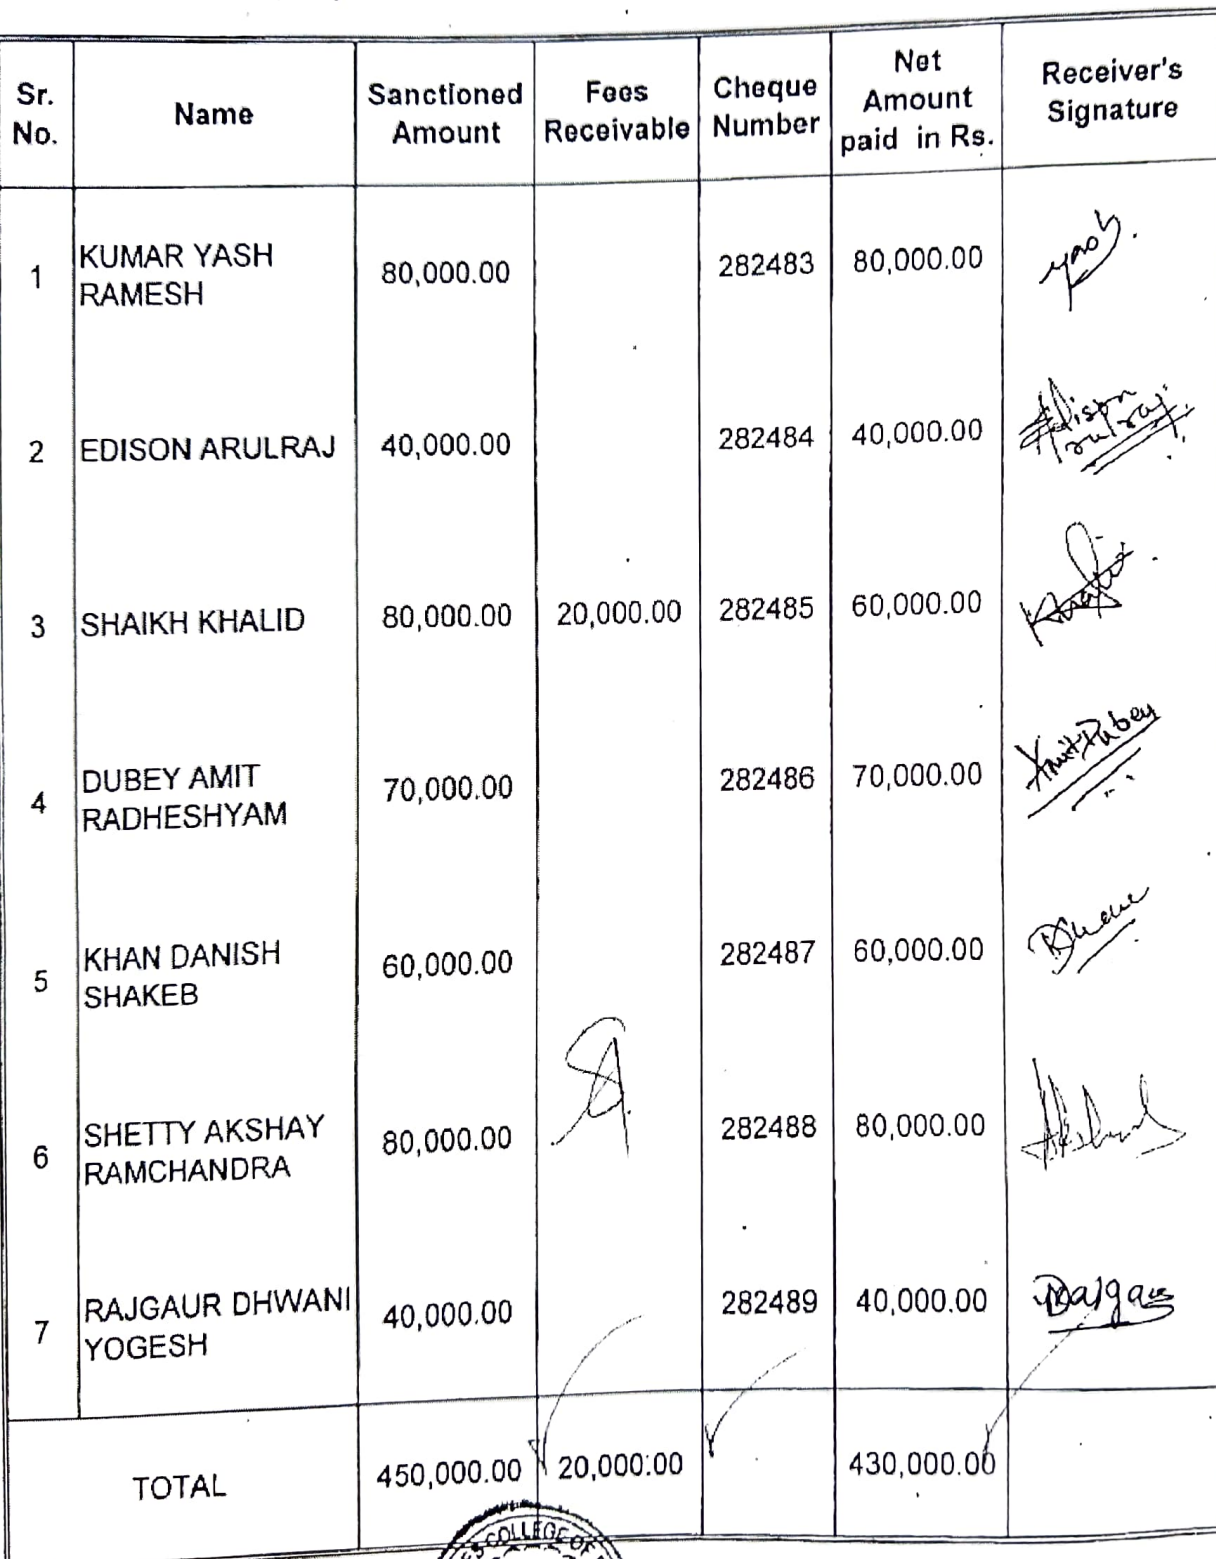 Sr. No. Name Sanctioned Amount Fees Receivable Cheque Number Net Amount paid in Rs. Receiver's Signature
1 KUMAR YASH RAMESH 80,000.00 282483 80,000.00 Yash
2 EDISON ARULRAJ 40,000.00 282484 40,000.00 Edison Arulraj
3 SHAIKH KHALID 80,000.00 20,000.00 282485 60,000.00 Khalid
4 DUBEY AMIT RADHESHYAM 70,000.00 282486 70,000.00 Amit Dubey
5 KHAN DANISH SHAKEB 60,000.00 282487 60,000.00
6 SHETTY AKSHAY RAMCHANDRA 80,000.00 282488 80,000.00
7 RAJGAUR DHWANI YOGESH 40,000.00 282489 40,000.00
TOTAL 450,000.00 20,000.00 430,000.00
COLLEGE OF